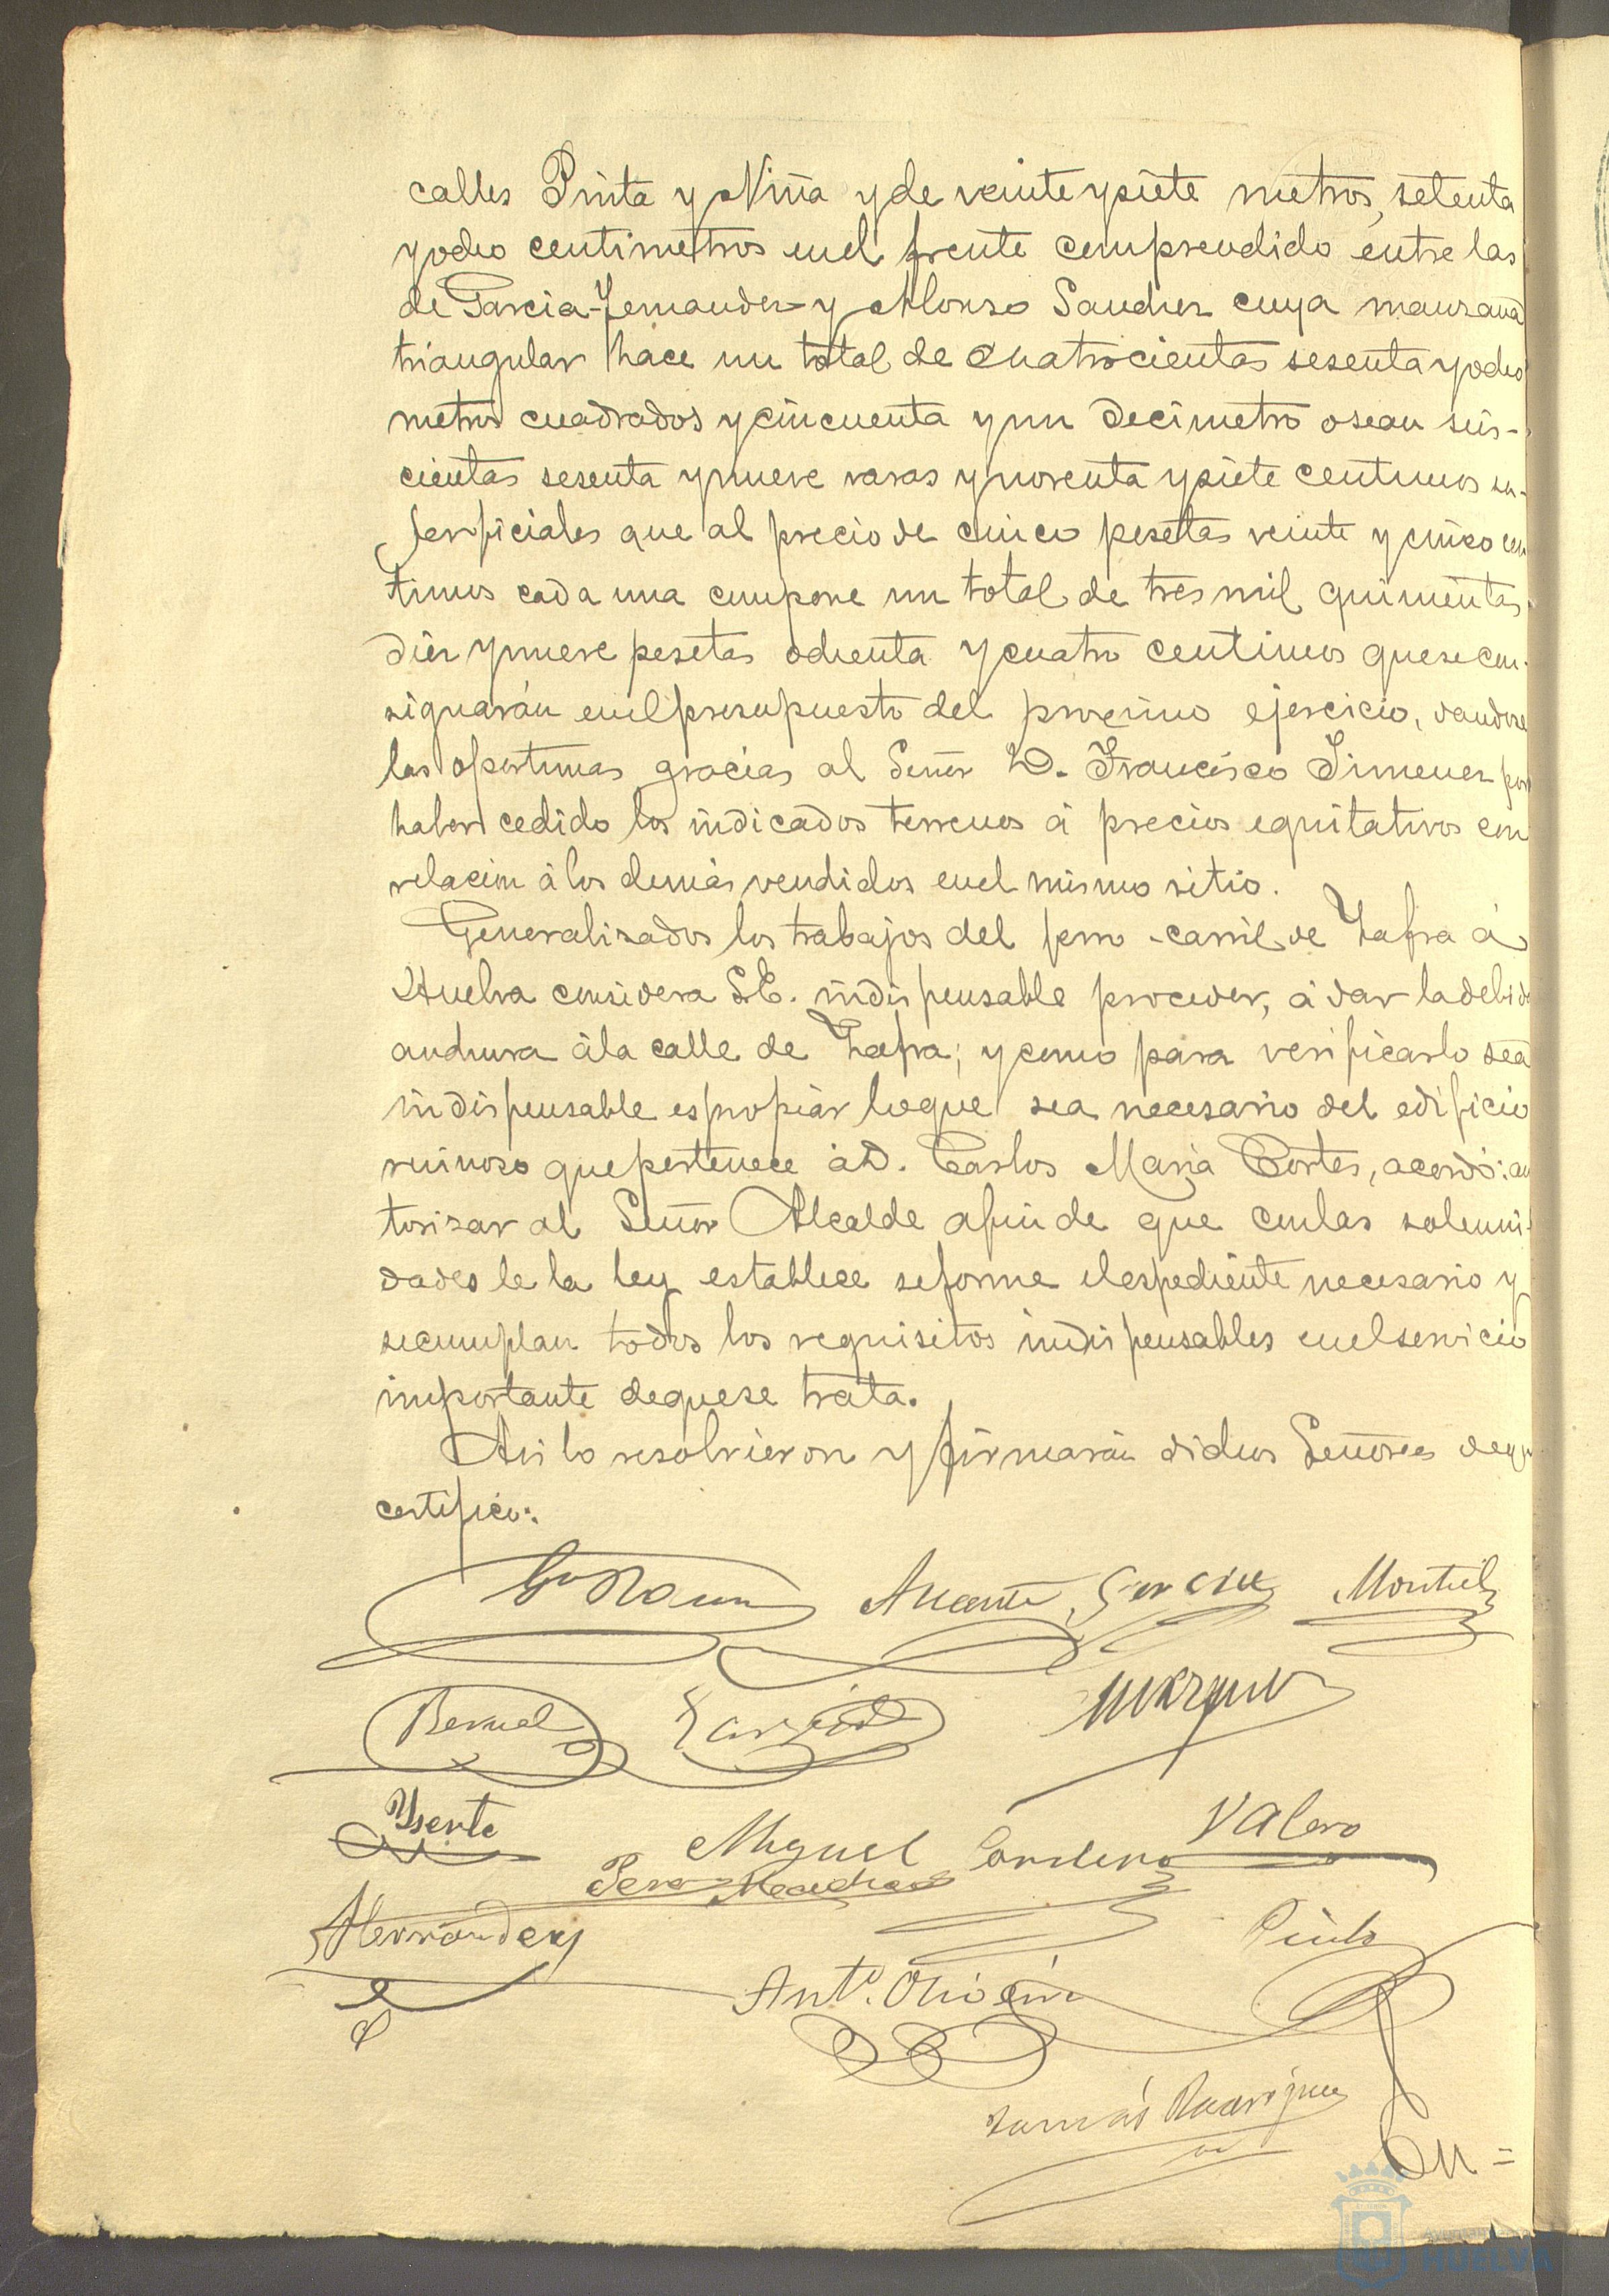 calles Pinta y Niña y de veinte y siete metros, setenta
y ocho centimetros en el frente comprendido entre las
de Garcia-Fernandez y Alonso Sanchez cuya manzana
triangular hace un total de cuatrocientos sesenta y ocho
metros cuadrados y cincuenta y un decimetro o sean seis-
cientas sesenta y nueve varas y noventa y siete centimos su-
perficiales que al precio de cinco pesetas veinte y cinco cen
timos cada una compone un total de tres mil quinientas
diez y nueve pesetas ochenta y cuatro centimos que se con-
signarán en el presupuesto del proximo ejercicio, dandose
las oportunas gracias al Señor D. Francisco Jimenez por
haber cedido los indicados terrenos á precios equitativos con
relacion á los demás vendidos en el mismo sitio.
Generalizados los trabajos del ferro-carril de Zafra á
Huelva considera S.E. indispensable proceder, á dar la debida
anchura á la calle de Zafra; y como para verificarlo sea
indispensable espropiar lo que sea necesario del edificio
ruinoso que pertenece á D. Carlos Maria Cortes, acordó: au
torizar al Señor Alcalde a fin de que con las solemni-
dades le la ley establece se forme el espediente necesario y
se cumplan todos los requisitos indispensables en el servicio
importante de que se trata.
Asi lo resolvieron y firmarán dichos Señores de que
certifico:.
Garcia Montiel
Bernal Garrido Marquez
Yserte Miguel Cordero Valero
Hernandez Pinto
Ant.º Oliveira
Tomás Rodriguez
HUELVA